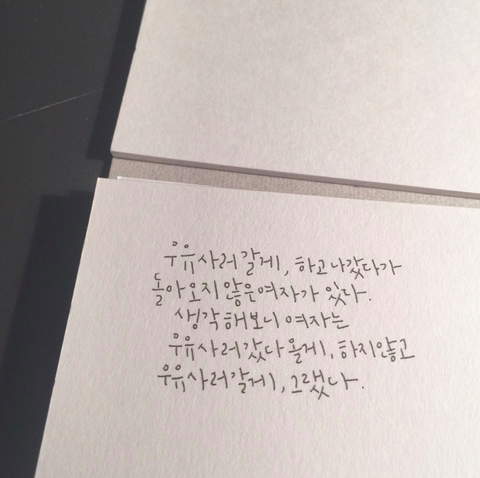 우유사러 갈게, 하고 나갔다가
돌아오지 않은 여자가 있다.
생각해보니 여자는
우유사러 갔다 올게, 하지않고
우유사러 갈게, 그랬다.